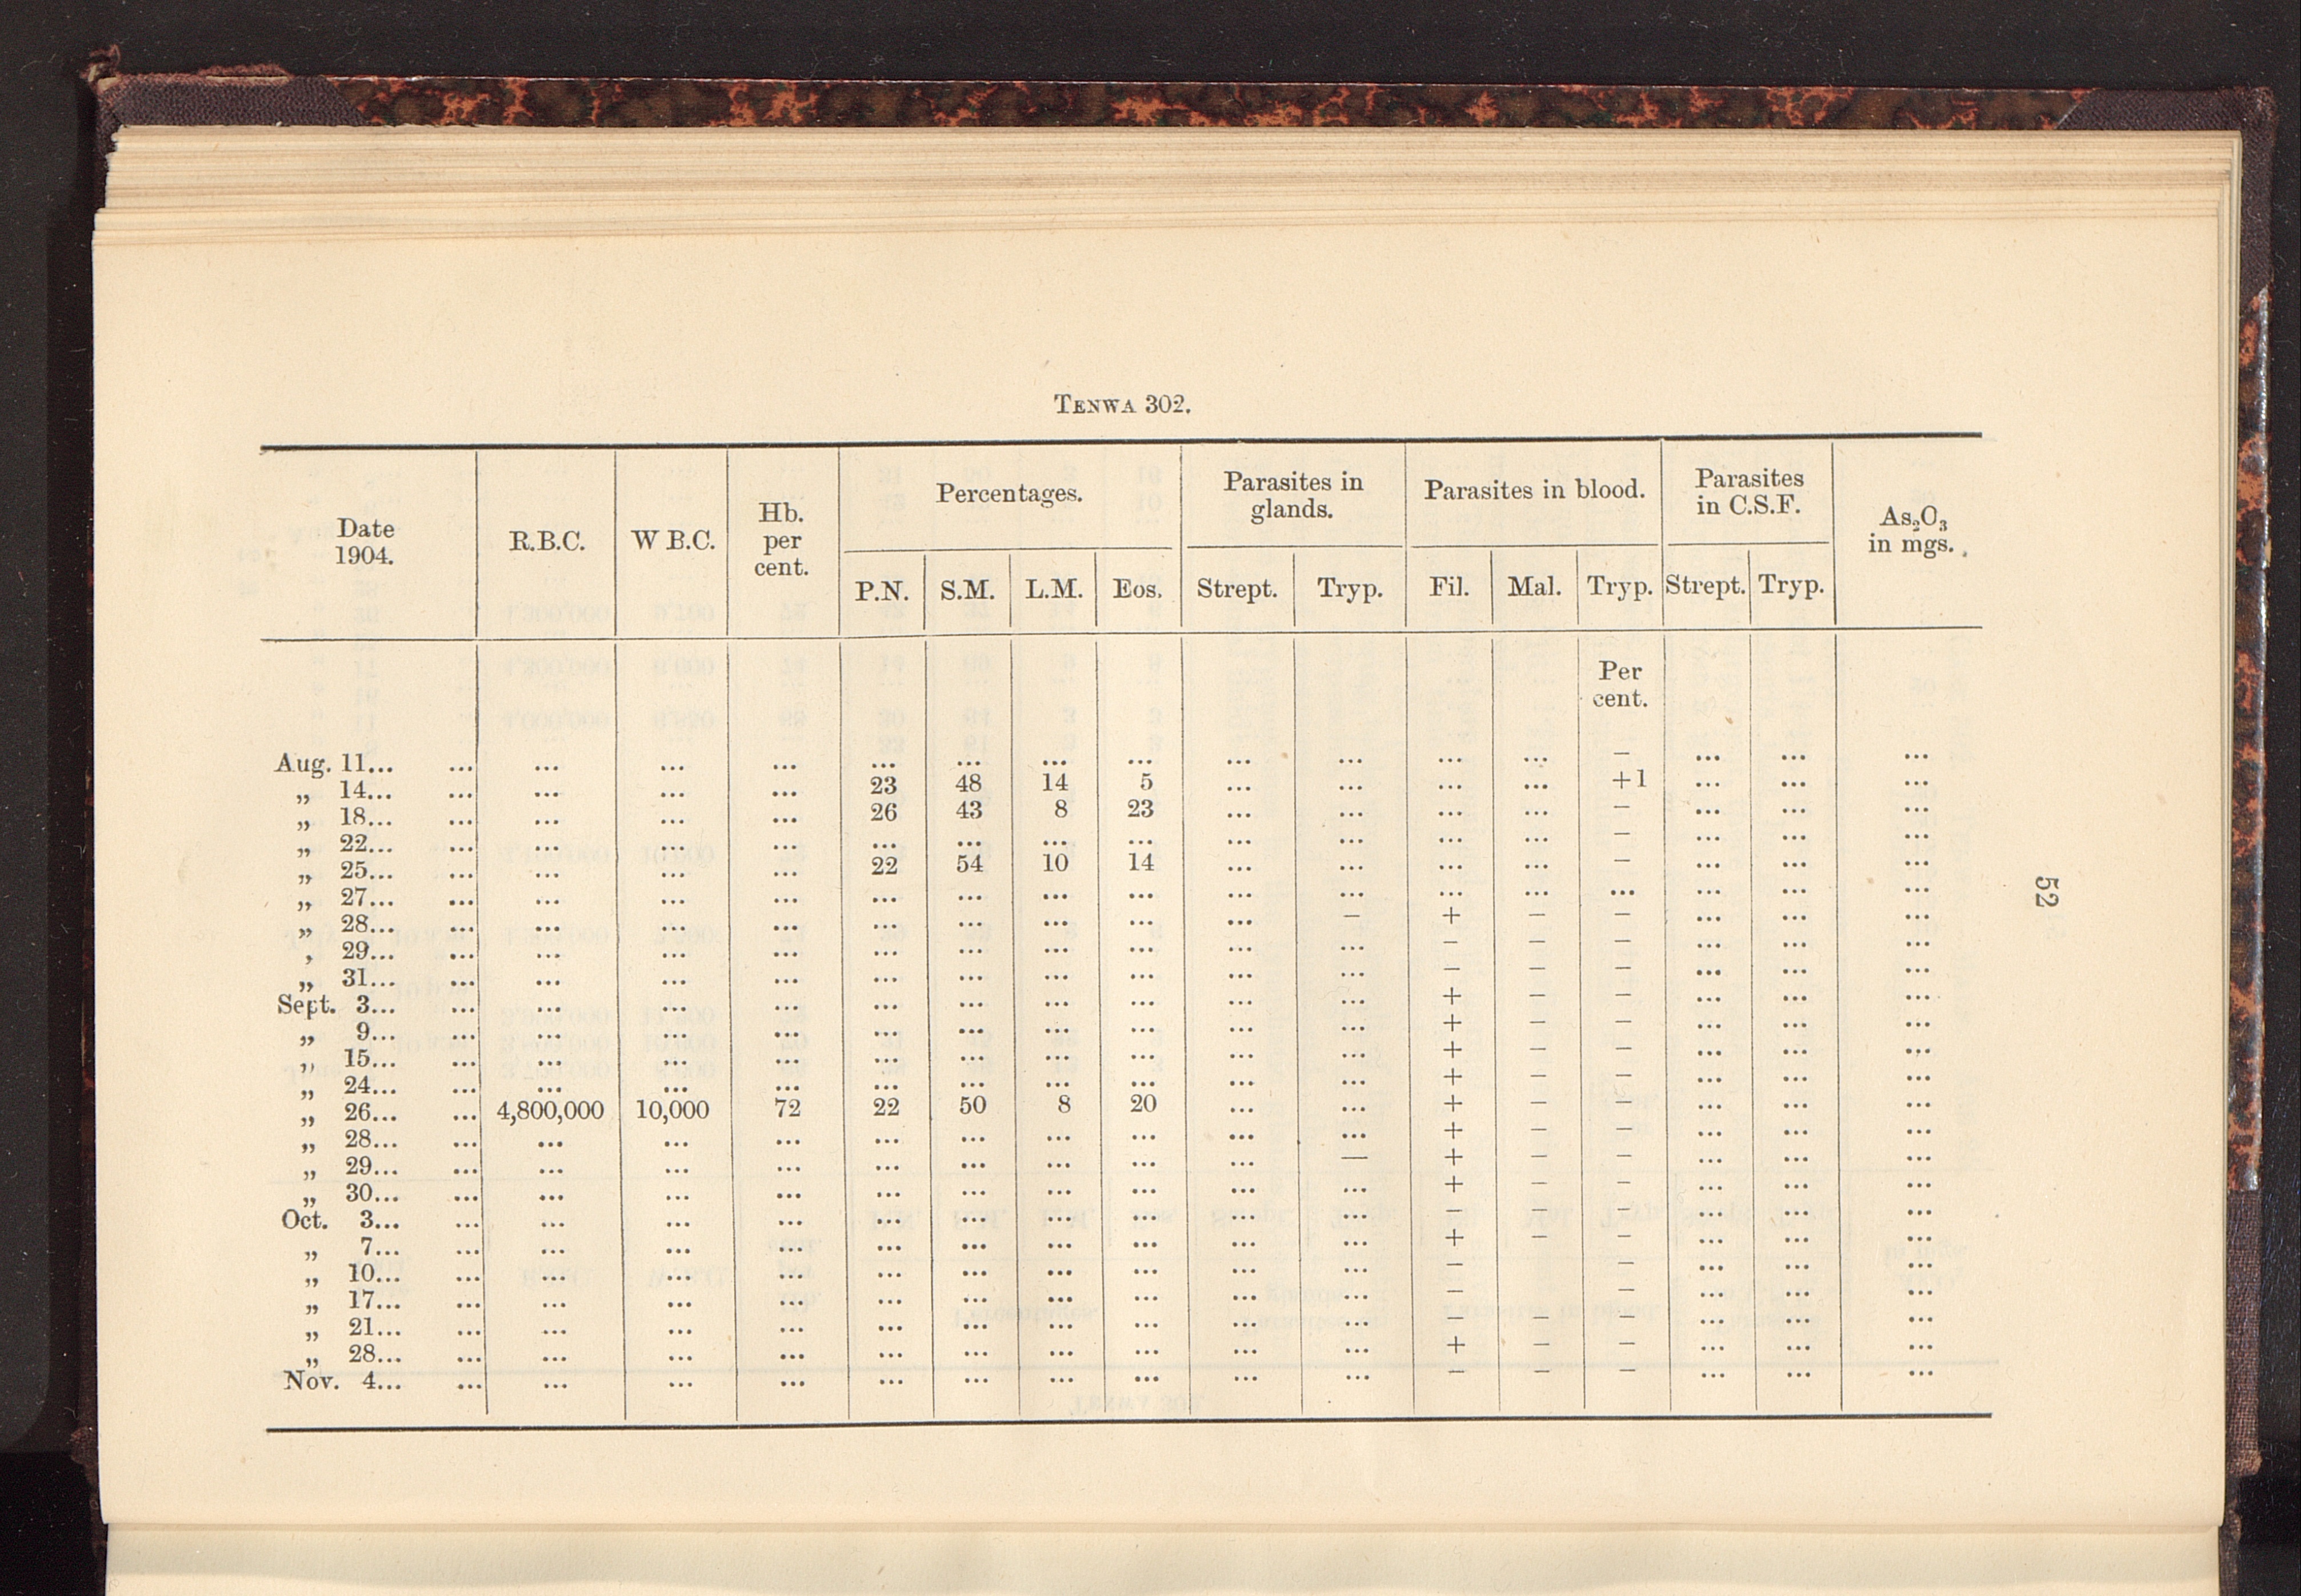 TENWA 302.
Date 1904. R.B.C. W B.C. Hb. per cent. Percentages. Parasites in glands. Parasites in blood. Parasites in C.S.F. As₂O₃ in mgs.
P.N. S.M. L.M. Eos. Strept. Tryp. Fil. Mal. Tryp. Strept. Tryp.
Per cent.
Aug. 11... ... ... ... ... ... ... ... ... ... ... ... ... – ... ... ...
„ 14... ... ... ... ... 23 48 14 5 ... ... ... ... +1 ... ... ...
„ 18... ... ... ... ... 26 43 8 23 ... ... ... ... – ... ... ...
„ 22... ... ... ... ... ... ... ... ... ... ... ... ... – ... ... ...
„ 25... ... ... ... ... 22 54 10 14 ... ... ... ... – ... ... ...
„ 27... ... ... ... ... ... ... ... ... ... ... ... ... ... ... ... ...
„ 28... ... ... ... ... ... ... ... ... ... – + – – ... ... ...
, 29... ... ... ... ... ... ... ... ... ... ... – – – ... ... ...
„ 31... ... ... ... ... ... ... ... ... ... ... – – – ... ... ...
Sept. 3... ... ... ... ... ... ... ... ... ... ... + – – ... ... ...
„ 9... ... ... ... ... ... ... ... ... ... ... + – – ... ... ...
„ 15... ... ... ... ... ... ... ... ... ... ... + – – ... ... ...
„ 24... ... ... ... ... ... ... ... ... ... ... + – – ... ... ...
„ 26... ... 4,800,000 10,000 72 22 50 8 20 ... ... + – – ... ... ...
„ 28... ... ... ... ... ... ... ... ... ... ... + – – ... ... ...
„ 29... ... ... ... ... ... ... ... ... ... — + – – ... ... ...
„ 30... ... ... ... ... ... ... ... ... ... ... + – – ... ... ...
Oct. 3... ... ... ... ... ... ... ... ... ... ... – – – ... ... ...
„ 7... ... ... ... ... ... ... ... ... ... ... + – – ... ... ...
„ 10... ... ... ... ... ... ... ... ... ... ... – – – ... ... ...
„ 17... ... ... ... ... ... ... ... ... ... ... – – – ... ... ...
„ 21... ... ... ... ... ... ... ... ... ... ... – – – ... ... ...
„ 28... ... ... ... ... ... ... ... ... ... ... + – – ... ... ...
Nov. 4... ... ... ... ... ... ... ... ... ... ... – – – ... ... ...
52